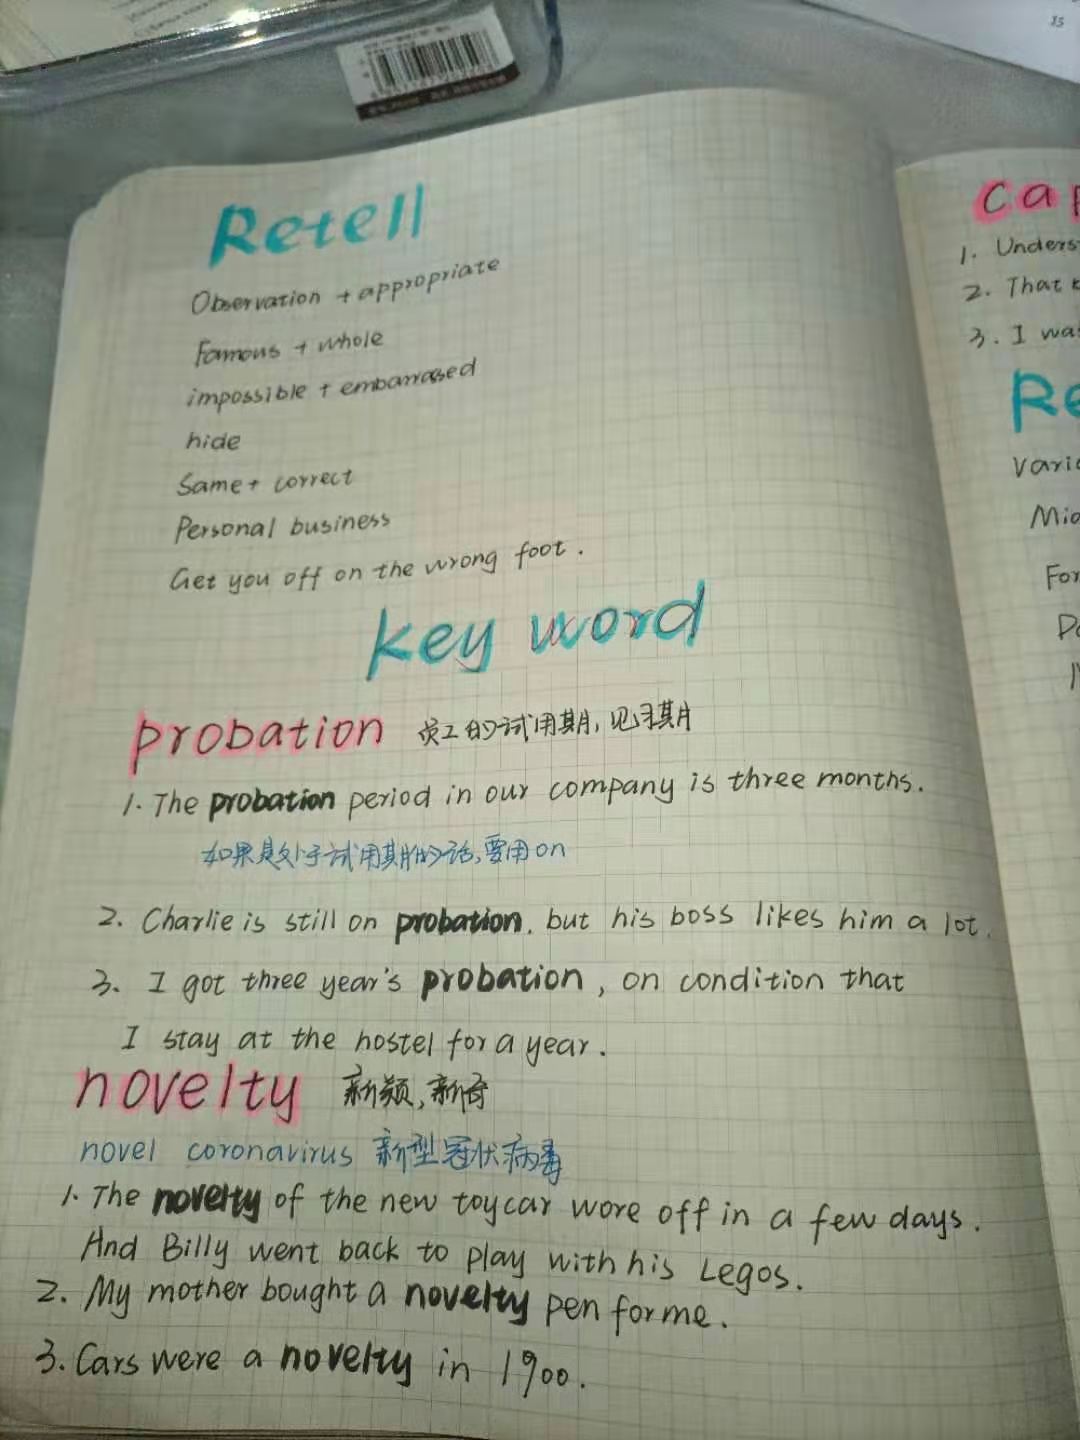 15
Retell
Observation + appropriate
Famous + whole
impossible + embarrassed
hide
Same + correct
Personal business
Get you off on the wrong foot.
key word
probation 员工的试用期,见习期
1. The probation period in our company is three months.
如果是处于试用期的话,要用on
2. Charlie is still on probation, but his boss likes him a lot.
3. I got three year's probation, on condition that
I stay at the hostel for a year.
novelty 新颖,新奇
novel coronavirus 新型冠状病毒
1. The novelty of the new toycar wore off in a few days.
And Billy went back to play with his Legos.
2. My mother bought a novelty pen for me.
3. Cars were a novelty in 1900.
1. Unders
2. That
3. I was